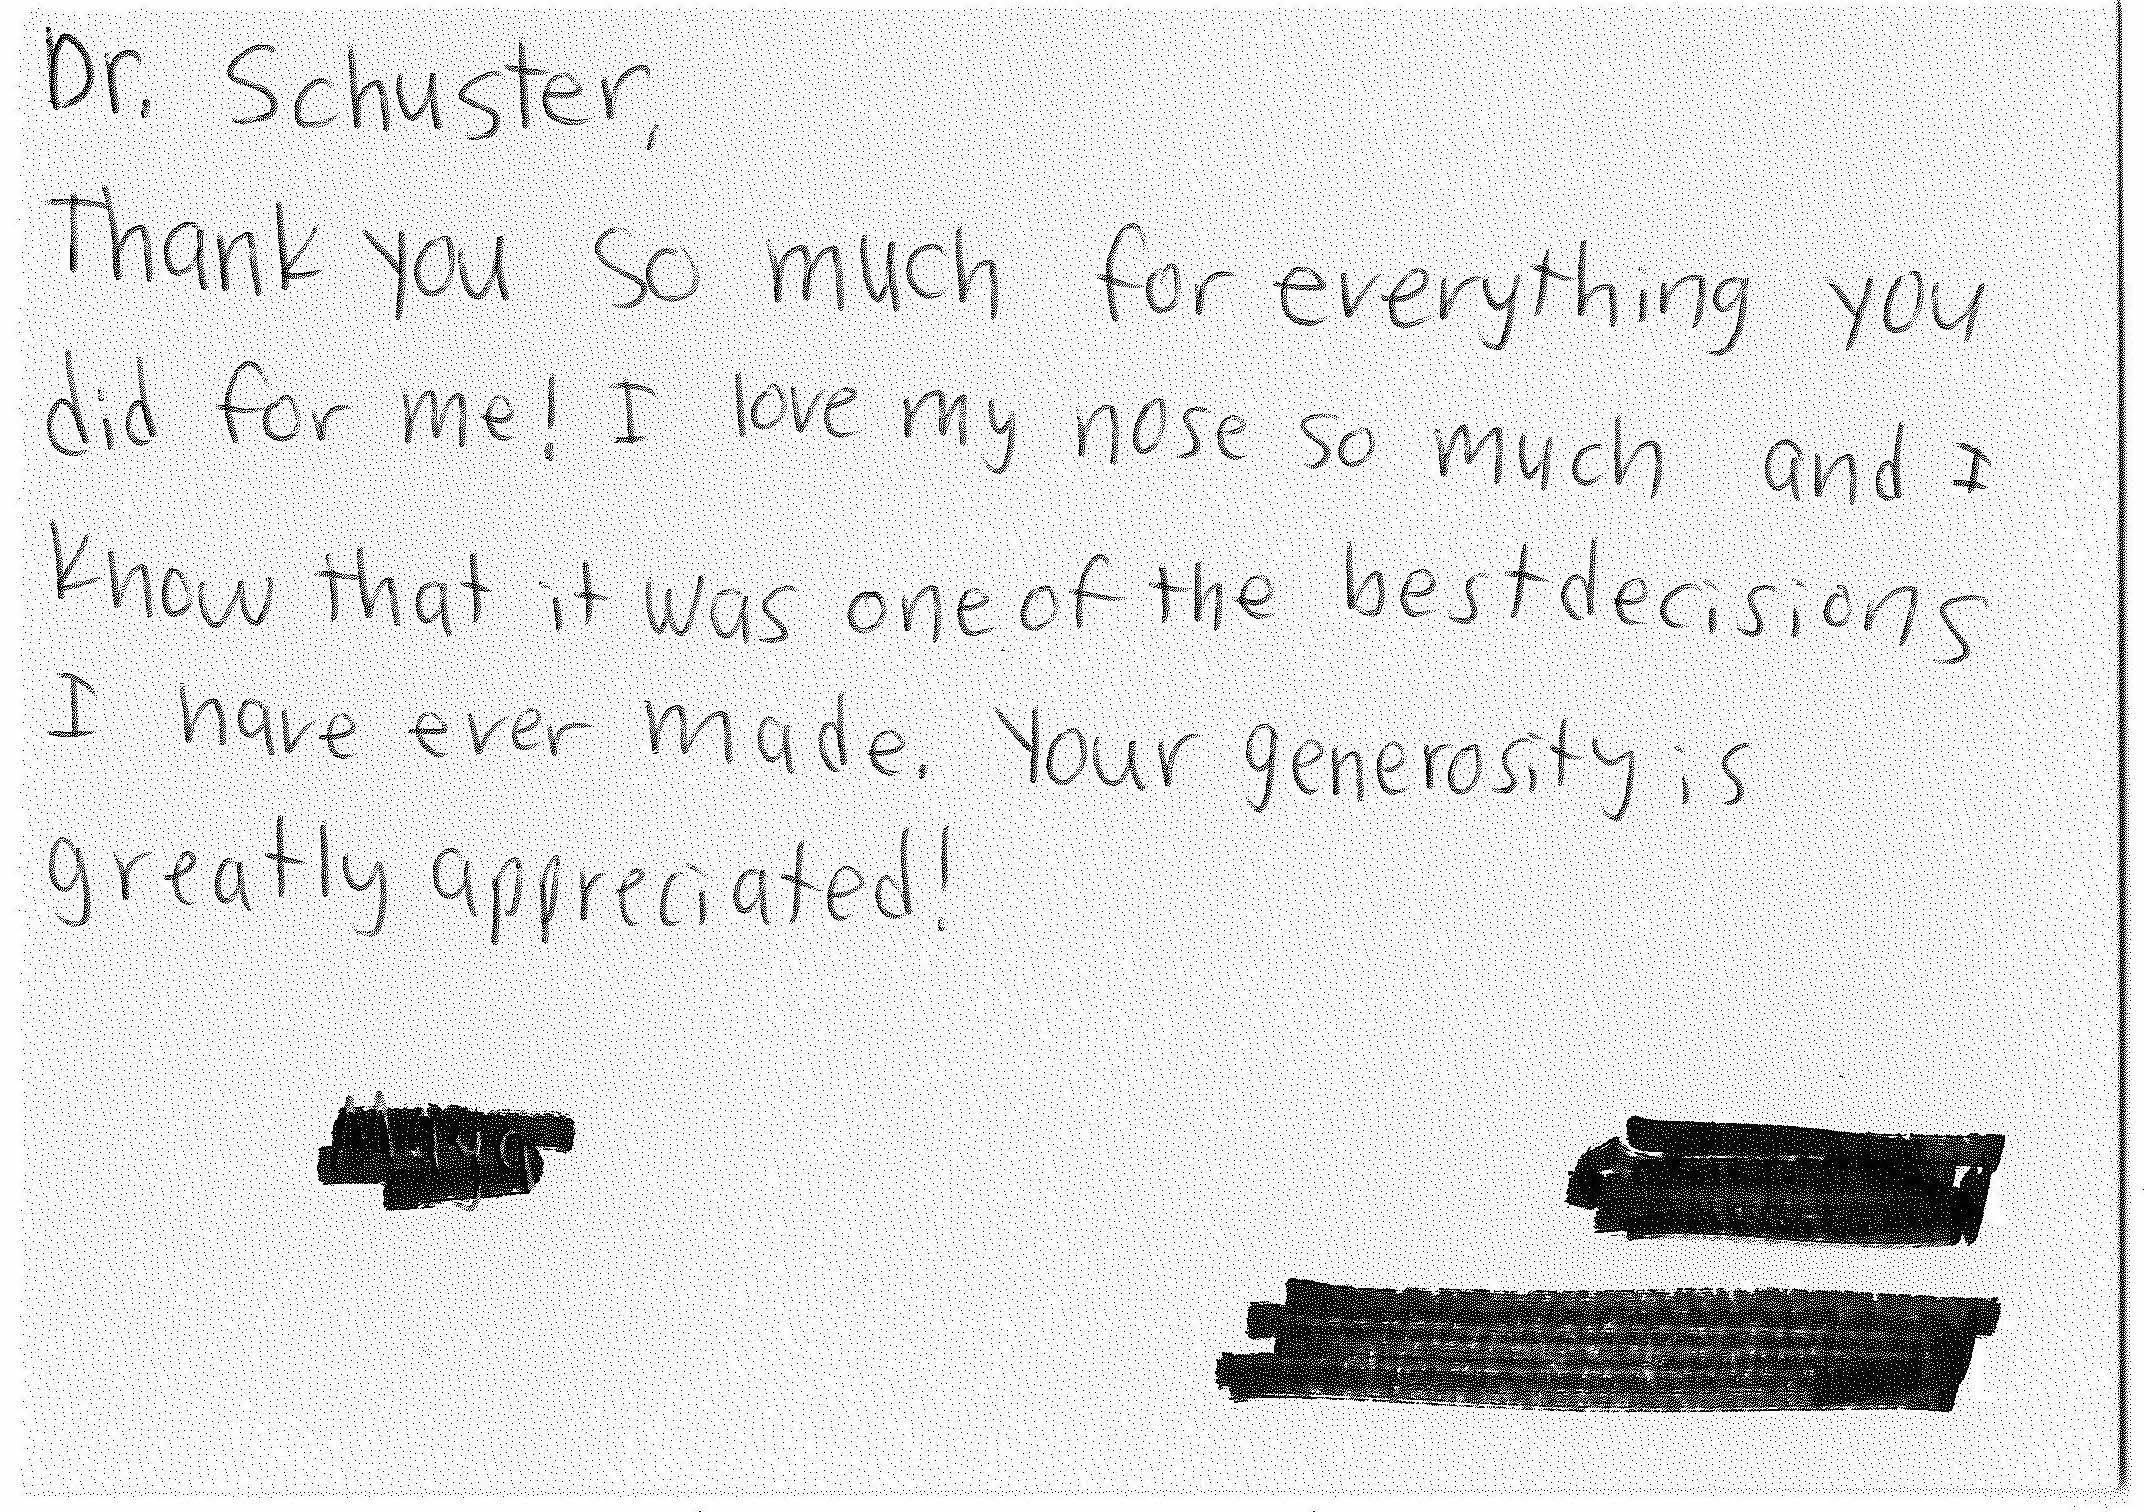 Dr. Schuster,
Thank you so much for everything you
did for me! I love my nose so much and I
know that it was one of the best decisions
I have ever made. Your generosity is
greatly appreciated!